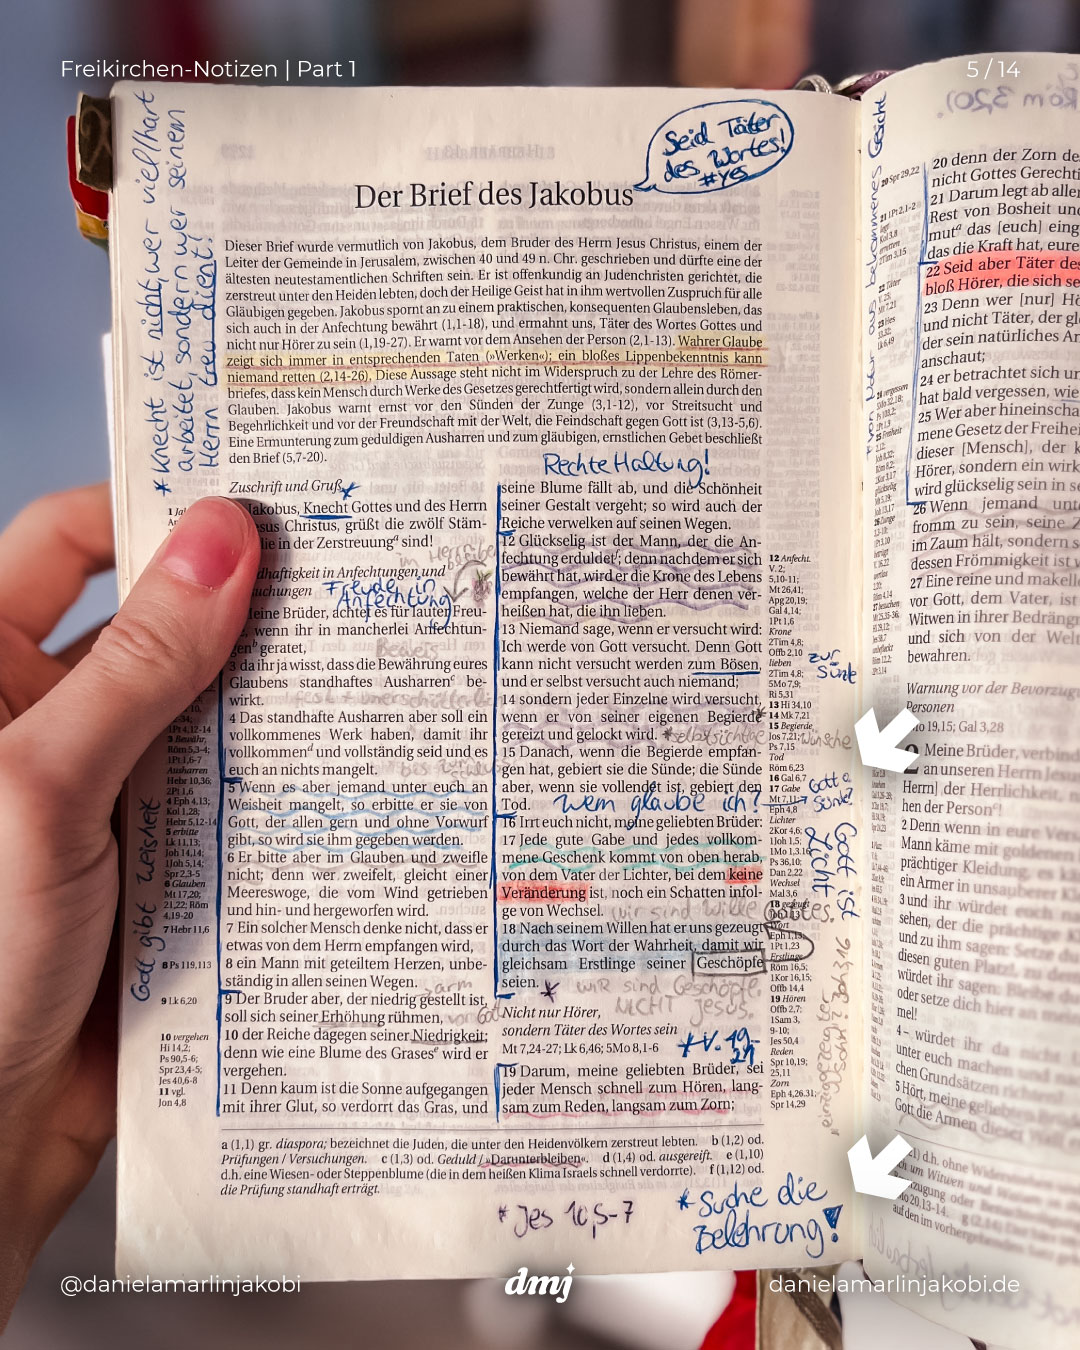 Freikirchen-Notizen | Part 1
5 / 14
* Knecht ist nicht, wer viel/hart
arbeitet, sondern wer seinem
Herrn treu dient!
Seid Täter
des Wortes!
#YES
Der Brief des Jakobus
Dieser Brief wurde vermutlich von Jakobus, dem Bruder des Herrn Jesus Christus, einem der
Leiter der Gemeinde in Jerusalem, zwischen 40 und 49 n. Chr. geschrieben und dürfte eine der
ältesten neutestamentlichen Schriften sein. Er ist offenkundig an Judenchristen gerichtet, die
zerstreut unter den Heiden lebten, doch der Heilige Geist hat in ihm wertvollen Zuspruch für alle
Gläubigen gegeben. Jakobus spornt an zu einem praktischen, konsequenten Glaubensleben, das
sich auch in der Anfechtung bewährt (1,1-18), und ermahnt uns, Täter des Wortes Gottes und
nicht nur Hörer zu sein (1,19-27). Er warnt vor dem Ansehen der Person (2,1-13). Wahrer Glaube
zeigt sich immer in entsprechenden Taten (»Werken«); ein bloßes Lippenbekenntnis kann
niemand retten (2,14-26). Diese Aussage steht nicht im Widerspruch zu der Lehre des Römer-
briefes, dass kein Mensch durch Werke des Gesetzes gerechtfertigt wird, sondern allein durch den
Glauben. Jakobus warnt ernst vor den Sünden der Zunge (3,1-12), vor Streitsucht und
Begehrlichkeit und vor der Freundschaft mit der Welt, die Feindschaft gegen Gott ist (3,13-5,6).
Eine Ermunterung zum geduldigen Ausharren und zum gläubigen, ernstlichen Gebet beschließt
den Brief (5,7-20).
Zuschrift und Gruß
Jakobus, Knecht Gottes und des Herrn
Jesus Christus, grüßt die zwölf Stäm-
die in der Zerstreuungᵃ sind!
Anfechtungen und
Freude in
Anfechtung
Meine Brüder, achtet es für lauter Freu-
wenn ihr in mancherlei Anfechtun-
genᵇ geratet,
3 da ihr ja wisst, dass die Bewährung eures
Glaubens standhaftes Ausharrenᶜ be-
wirkt.
4 Das standhafte Ausharren aber soll ein
vollkommenes Werk haben, damit ihr
vollkommenᵈ und vollständig seid und es
euch an nichts mangelt.
5 Wenn es aber jemand unter euch an
Weisheit mangelt, so erbitte er sie von
Gott, der allen gern und ohne Vorwurf
gibt, so wird sie ihm gegeben werden.
6 Er bitte aber im Glauben und zweifle
nicht; denn wer zweifelt, gleicht einer
Meereswoge, die vom Wind getrieben
und hin- und hergeworfen wird.
7 Ein solcher Mensch denke nicht, dass er
etwas von dem Herrn empfangen wird,
8 ein Mann mit geteiltem Herzen, unbe-
ständig in allen seinen Wegen.
9 Der Bruder aber, der niedrig gestellt ist,
soll sich seiner Erhöhung rühmen,
10 der Reiche dagegen seiner Niedrigkeit;
denn wie eine Blume des Grasesᵉ wird er
vergehen.
11 Denn kaum ist die Sonne aufgegangen
mit ihrer Glut, so verdorrt das Gras, und
Gott gibt Weisheit
3 Bewähr.
Röm 5,3-4;
1Pt 1,6-7
Ausharren
Hebr 10,36;
2Pt 1,6
4 Eph 4,13;
Kol 1,28;
Hebr 5,12-14
5 erbitte
Lk 11,13;
Joh 14,14;
1Joh 5,14;
Spr 2,3-5
6 Glauben
Mt 17,20;
21,22; Röm
4,19-20
7 Hebr 11,6
8 Ps 119,113
9 Lk 6,20
10 vergehen
Hi 14,2;
Ps 90,5-6;
Spr 23,4-5;
Jes 40,6-8
11 vgl.
Jon 4,8
Rechte Haltung!
seine Blume fällt ab, und die Schönheit
seiner Gestalt vergeht; so wird auch der
Reiche verwelken auf seinen Wegen.
12 Glückselig ist der Mann, der die An-
fechtung erduldetᶠ; denn nachdem er sich
bewährt hat, wird er die Krone des Lebens
empfangen, welche der Herr denen ver-
heißen hat, die ihn lieben.
13 Niemand sage, wenn er versucht wird:
Ich werde von Gott versucht. Denn Gott
kann nicht versucht werden zum Bösen,
und er selbst versucht auch niemand;
14 sondern jeder Einzelne wird versucht,
wenn er von seiner eigenen Begierde
gereizt und gelockt wird.
15 Danach, wenn die Begierde empfan-
gen hat, gebiert sie die Sünde; die Sünde
aber, wenn sie vollendet ist, gebiert den
Tod.
Wem glaube ich?
16 Irrt euch nicht, meine geliebten Brüder:
17 Jede gute Gabe und jedes vollkom-
mene Geschenk kommt von oben herab,
von dem Vater der Lichter, bei dem keine
Veränderung ist, noch ein Schatten infol-
ge von Wechsel.
wir sind Wille Gottes.
18 Nach seinem Willen hat er uns gezeugt
durch das Wort der Wahrheit, damit wir
gleichsam Erstlinge seiner Geschöpfe
seien.
* wir sind Geschöpfe
NICHT Jesus.
Nicht nur Hörer,
sondern Täter des Wortes sein
Mt 7,24-27; Lk 6,46; 5Mo 8,1-6
* V. 19-
21
19 Darum, meine geliebten Brüder, sei
jeder Mensch schnell zum Hören, lang-
sam zum Reden, langsam zum Zorn;
12 Anfecht.
V. 2;
5,10-11;
Mt 26,41;
Apg 20,19;
Gal 4,14;
1Pt 1,6
Krone
2Tim 4,8;
Offb 2,10
lieben
2Tim 4,8;
5Mo 7,9;
Ri 5,31
13 Hi 34,10
14 Mk 7,21
15 Begierde
Jos 7,21;
Ps 7,15
Tod
Röm 6,23
16 Gal 6,7
17 Gabe
Mt 7,11;
Eph 4,8
Lichter
2Kor 4,6;
1Joh 1,5;
1Mo 1,3.16
Ps 36,10;
Dan 2,22
Wechsel
Mal 3,6
18 gezeugt
Eph 1,13;
1Pt 1,23
Erstlinge
Röm 16,5;
1Kor 16,15;
Offb 14,4
19 Hören
Offb 2,7;
1Sam 3,
9-10;
Jes 50,4
Reden
Spr 10,19;
25,11
Zorn
Eph 4,26.31;
Spr 14,29
zur
Sünde
Wünsche
Gott o.
Sünde?
Gott ist
Licht
a (1,1) gr. diaspora; bezeichnet die Juden, die unter den Heidenvölkern zerstreut lebten. b (1,2) od.
Prüfungen / Versuchungen. c (1,3) od. Geduld / »Darunterbleiben«. d (1,4) od. ausgereift. e (1,10)
d.h. eine Wiesen- oder Steppenblume (die in dem heißen Klima Israels schnell verdorrte). f (1,12) od.
die Prüfung standhaft erträgt.
* Jes 10,5-7
* Suche die
Belehrung!
20 denn der Zorn de
nicht Gottes Gerechti
21 Darum legt ab aller
Rest von Bosheit und
mutᵃ das [euch] eing
das die Kraft hat, eure
22 Seid aber Täter des
bloß Hörer, die sich se
23 Denn wer [nur] Hö
und nicht Täter, der gl
der sein natürliches An
anschaut;
24 er betrachtet sich un
hat bald vergessen, wie
25 Wer aber hineinscha
mene Gesetz der Freihei
dieser [Mensch], der k
Hörer, sondern ein wirk
wird glückselig sein in se
26 Wenn jemand unt
fromm zu sein, seine Z
im Zaum hält, sondern s
dessen Frömmigkeit ist v
27 Eine reine und makell
vor Gott, dem Vater, ist
Witwen in ihrer Bedräng
und sich von der Welt
bewahren.
Warnung vor der Bevorzug
Personen
19,15; Gal 3,28
2 Meine Brüder, verbin
an unseren Herrn Jesu
Herrn] der Herrlichkeit, n
hen der Personᶠ!
2 Denn wenn in eure Vers
Mann käme mit goldene
prächtiger Kleidung, es k
ein Armer in unsauberer K
3 und ihr würdet eu
sehen, der die prächt
und zu ihm sagen: S
diesen guten Platz, zu de
würdet ihr sagen: Ble
oder setze dich hier an me
mel!
4 – würdet ihr da nicht u
unter euch machen u
chen Grundsätzen richt
5 Hört, meine geliebten
Gott die Armen dieser
@danielamarlinjakobi
dmj
danielamarlinjakobi.de